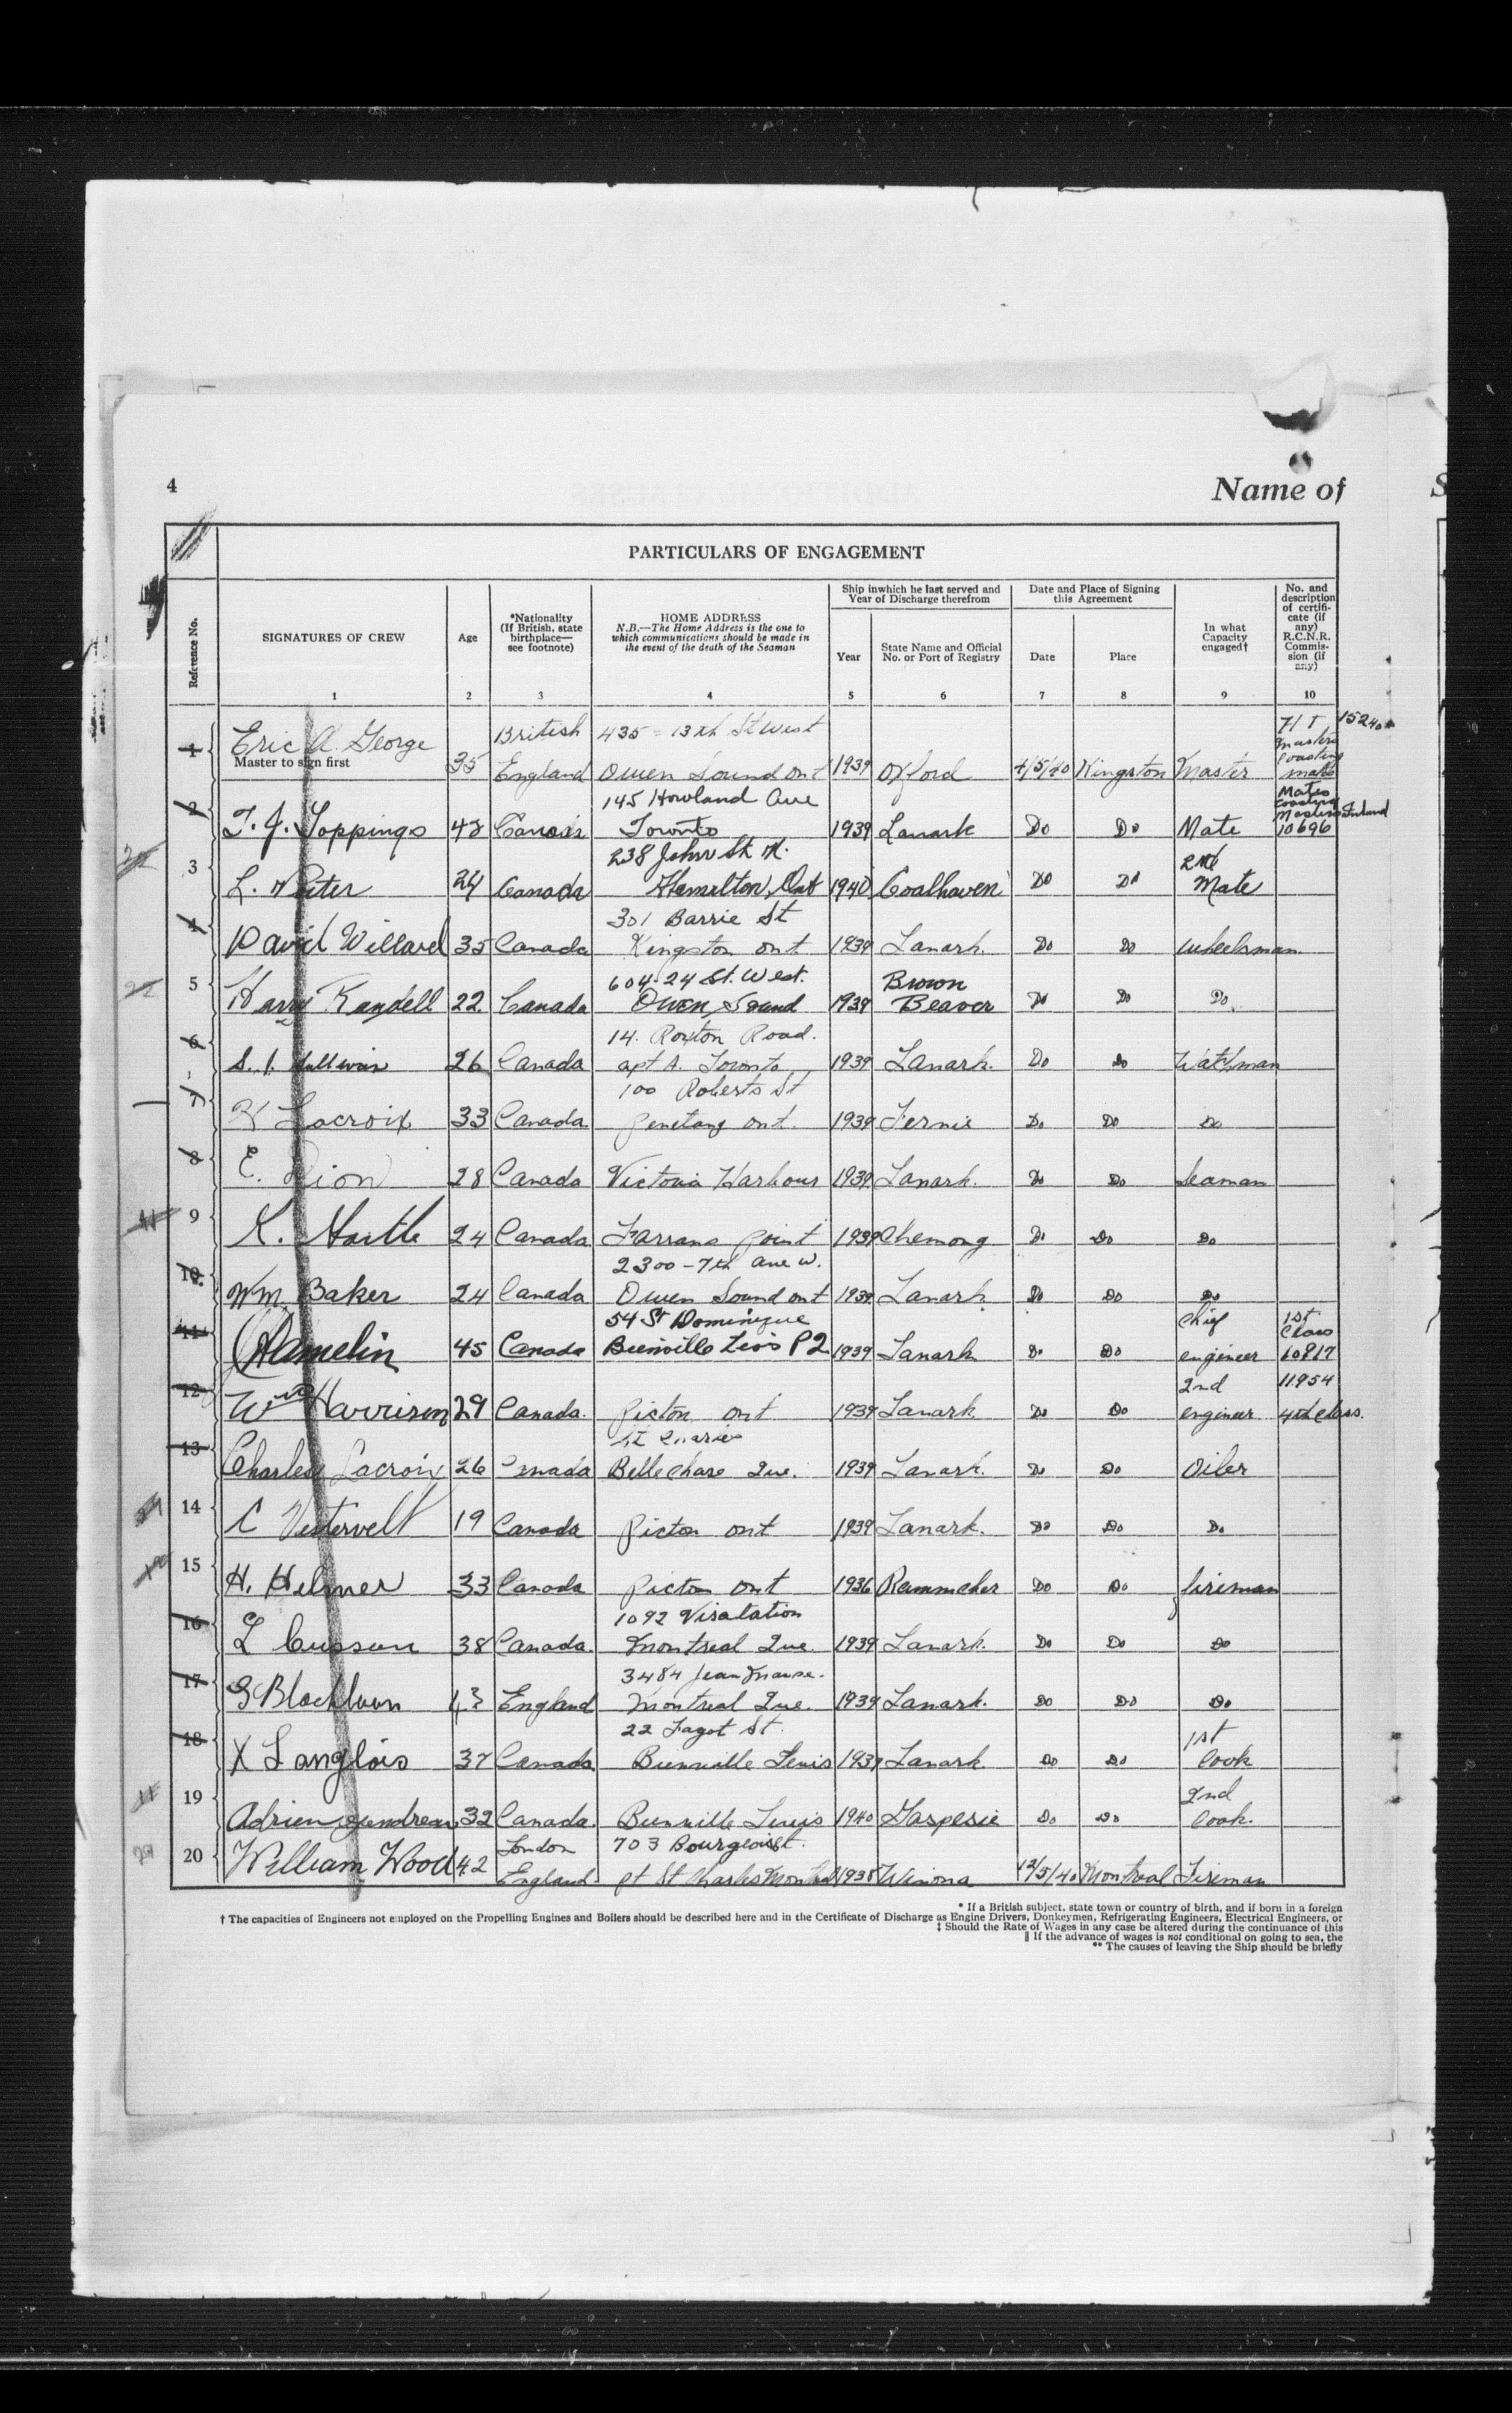 4
Name of
PARTICULARS OF ENGAGEMENT
Reference No.
SIGNATURES OF CREW
Age
*Nationality
(If British, state
birthplace—
see footnote)
HOME ADDRESS
N.B.—The Home Address is the one to
which communications should be made in
the event of the death of the Seaman
Ship in which he last served and
Year of Discharge therefrom
Year
State Name and Official
No. or Port of Registry
Date and Place of Signing
this Agreement
Date
Place
In what
Capacity
engaged†
No. and
description
of certifi-
cate (if
any)
R.C.N.R.
Commis-
sion (if
any)
1 2 3 4 5 6 7 8 9 10
British 435 - 13th St West
1 Eric A. George 35 England Owen Sound ont 1939 Oxford 4/5/40 Kingston Master
Master to sign first
Masters coasting mates
145 Howland Ave
2 T. J. Toppings 42 Canada Toronto 1939 Lanark Do Do Mate
Mates coasting Masters Inland 10696
238 John St N. 2nd
3 24 Canada Hamilton, Ont 1940 Coalhaven Do Do Mate
301 Barrie St
4 David Willard 35 Canada Kingston ont 1939 Lanark Do Do Wheelsman
604-24 St. West. Brown
5 Harry Randell 22 Canada Owen Sound 1939 Beaver Do Do Do
14 Roxton Road.
6 26 Canada apt A. Toronto 1939 Lanark. Do Do Watchman
100 Roberts St
7 Lacroix 33 Canada Penetang ont. 1939 Fernie Do Do Do
8 E. Dion 28 Canada Victoria Harbour 1939 Lanark. Do Do Seaman
9 K. 24 Canada Farrans Point 1939 Chemong Do Do Do
2300 - 7th Ave W.
10 Wm. Baker 24 Canada Owen Sound ont 1939 Lanark Do Do Do
54 St Dominique Chief 1st Class
11 Hamelin 45 Canada Bienville Levis P2 1939 Lanark Do Do engineer 60817
2nd 11954
12 Wm Harrison 29 Canada. Picton ont 1939 Lanark Do Do engineer 4th class.
13 Charles Lacroix 26 Canada Bellechase Que. 1939 Lanark. Do Do Oiler
14 C Vestervelt 19 Canada Picton ont 1939 Lanark. Do Do Do
15 H. Helmer 33 Canada Picton ont 1936 Do Do fireman
1092 Visatation
16 L Cusson 38 Canada. Montreal Que. 1939 Lanark. Do Do Do
3484
17 G Blackburn 43 England Montreal Que. 1939 Lanark. Do Do Do
22 Fagot St. 1st
18 X Langlois 37 Canada Bienville Levis 1939 Lanark. Do Do Cook
2nd
19 Adrien Gendreau 32 Canada Bienville Levis 1940 Gaspesie Do Do Cook.
London 703 Bourgeois St.
20 William Wood 42 England pt St Charles Montreal 1938 Winona 12/5/40 Montreal Fireman
* If a British subject, state town or country of birth, and if born in a foreign
† The capacities of Engineers not employed on the Propelling Engines and Boilers should be described here and in the Certificate of Discharge as Engine Drivers, Donkeymen, Refrigerating Engineers, Electrical Engineers, or
‡ Should the Rate of Wages in any case be altered during the continuance of this
‖ If the advance of wages is not conditional on going to sea, the
** The causes of leaving the Ship should be briefly